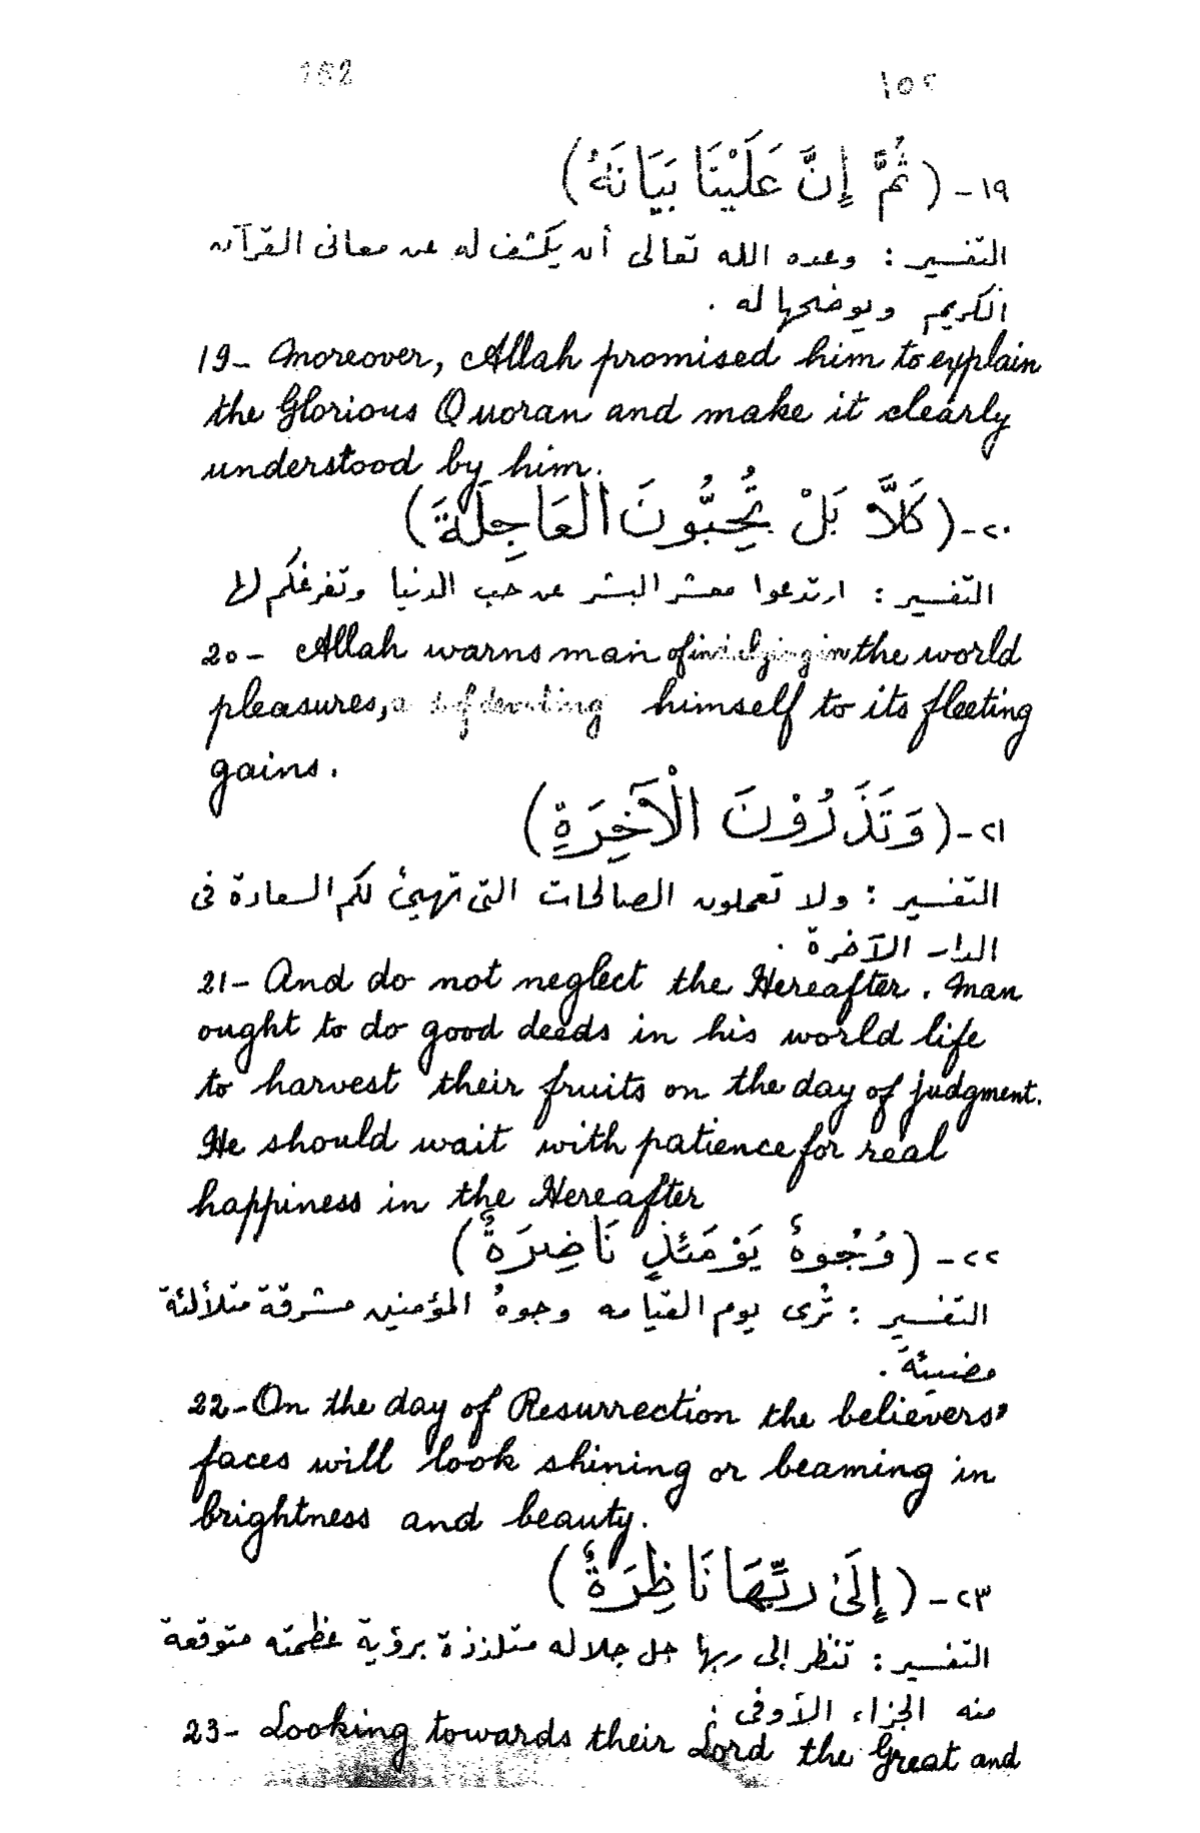 152 ١٥٢
١٩ - ( ثُمَّ إِنَّ عَلَيْنَا بَيَانَهُ )
التفسير : وعده الله تعالى أن يكشف له عن معانى القرآن
الكريم ويوضحها له .
19- Moreover, Allah promised him to explain
the Glorious Quoran and make it clearly
understood by him.
٢٠ - ( كَلَّا بَلْ تُحِبُّونَ العَاجِلَةَ )
التفسير : ارتدعوا معشر البشر عن حب الدنيا وتفرغكم لها
20- Allah warns man of in the world
pleasures, himself to its fleeting
gains.
٢١ - ( وَتَذَرُوْنَ الْآخِرَةِ )
التفسير : ولا تعملون الصالحات التى تهيئ لكم السعادة فى
الدار الآخرة .
21- And do not neglect the Hereafter. Man
ought to do good deeds in his world life
to harvest their fruits on the day of judgment.
He should wait with patience for real
happiness in the Hereafter
٢٢ - ( وُجُوهٌ يَوْمَئِذٍ نَاضِرَةٌ )
التفسير : تُرى يوم القيامه وجوهُ المؤمنين مشرقة متلألئة
مضيئة .
22- On the day of Resurrection the believers'
faces will look shining or beaming in
brightness and beauty.
٢٣ - ( إِلَىٰ رَبِّهَا نَاظِرَةٌ )
التفسير : تنظر إلى ربها جل جلاله متلذذة برؤية عظمته متوقعة
منه الجزاء الأوفى .
23- Looking towards their Lord the Great and